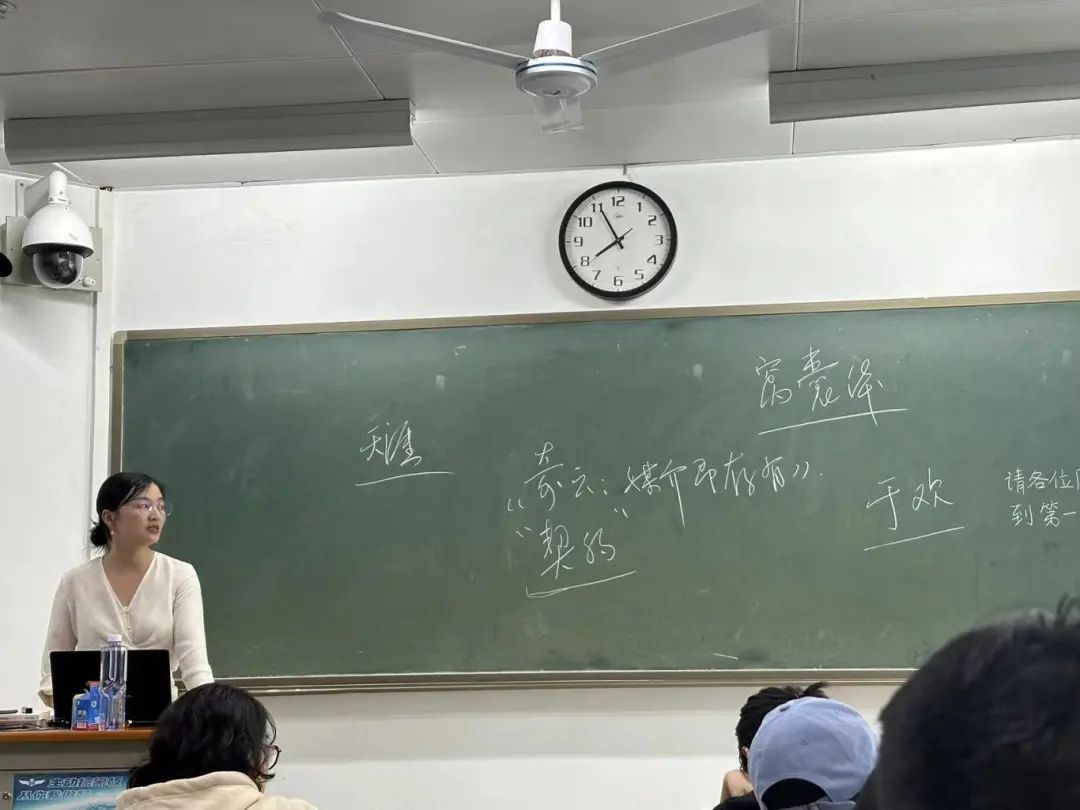 12
11 1
10 2
9 3
8 4
7 5
6
窝囊
天涯
《奇云：媒介即存有》
“契约”
于欢
请各位
到第一